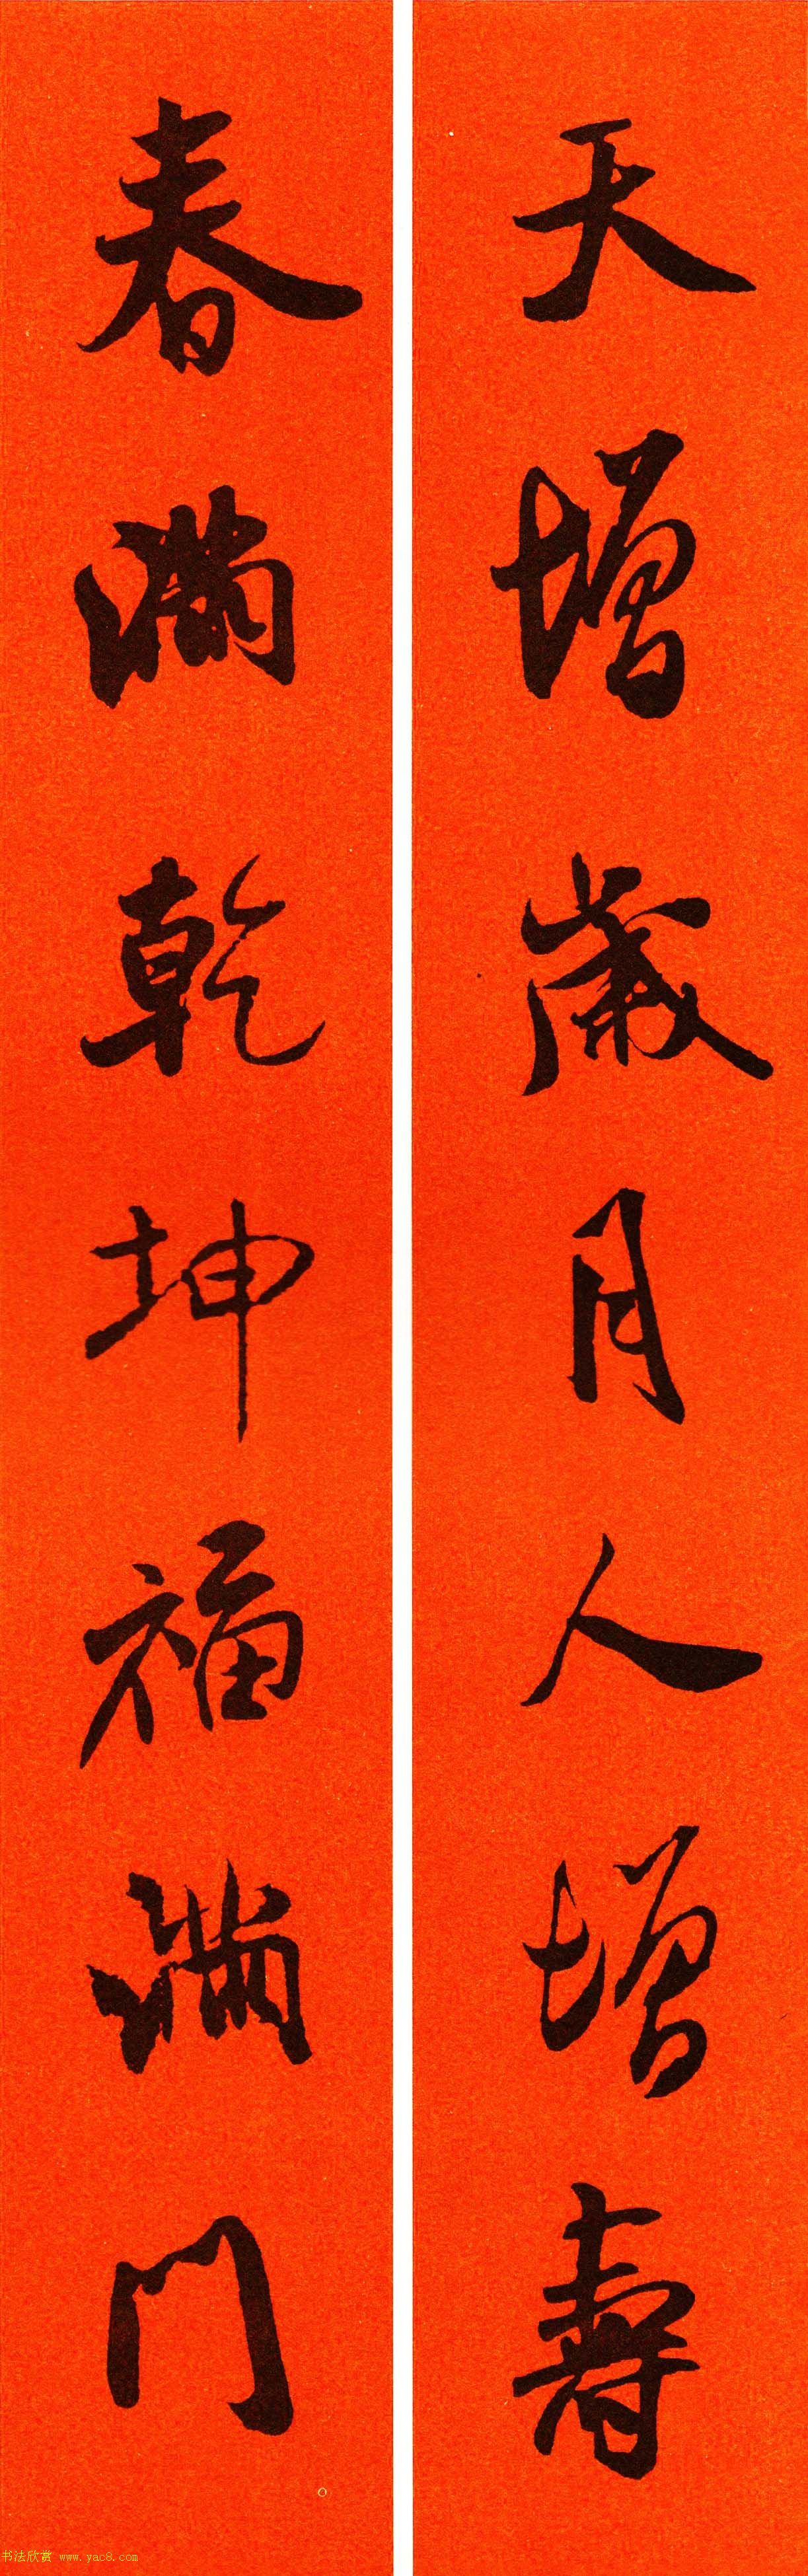 天增歲月人增壽
春滿乾坤福滿門
书法欣赏 www.yac8.com